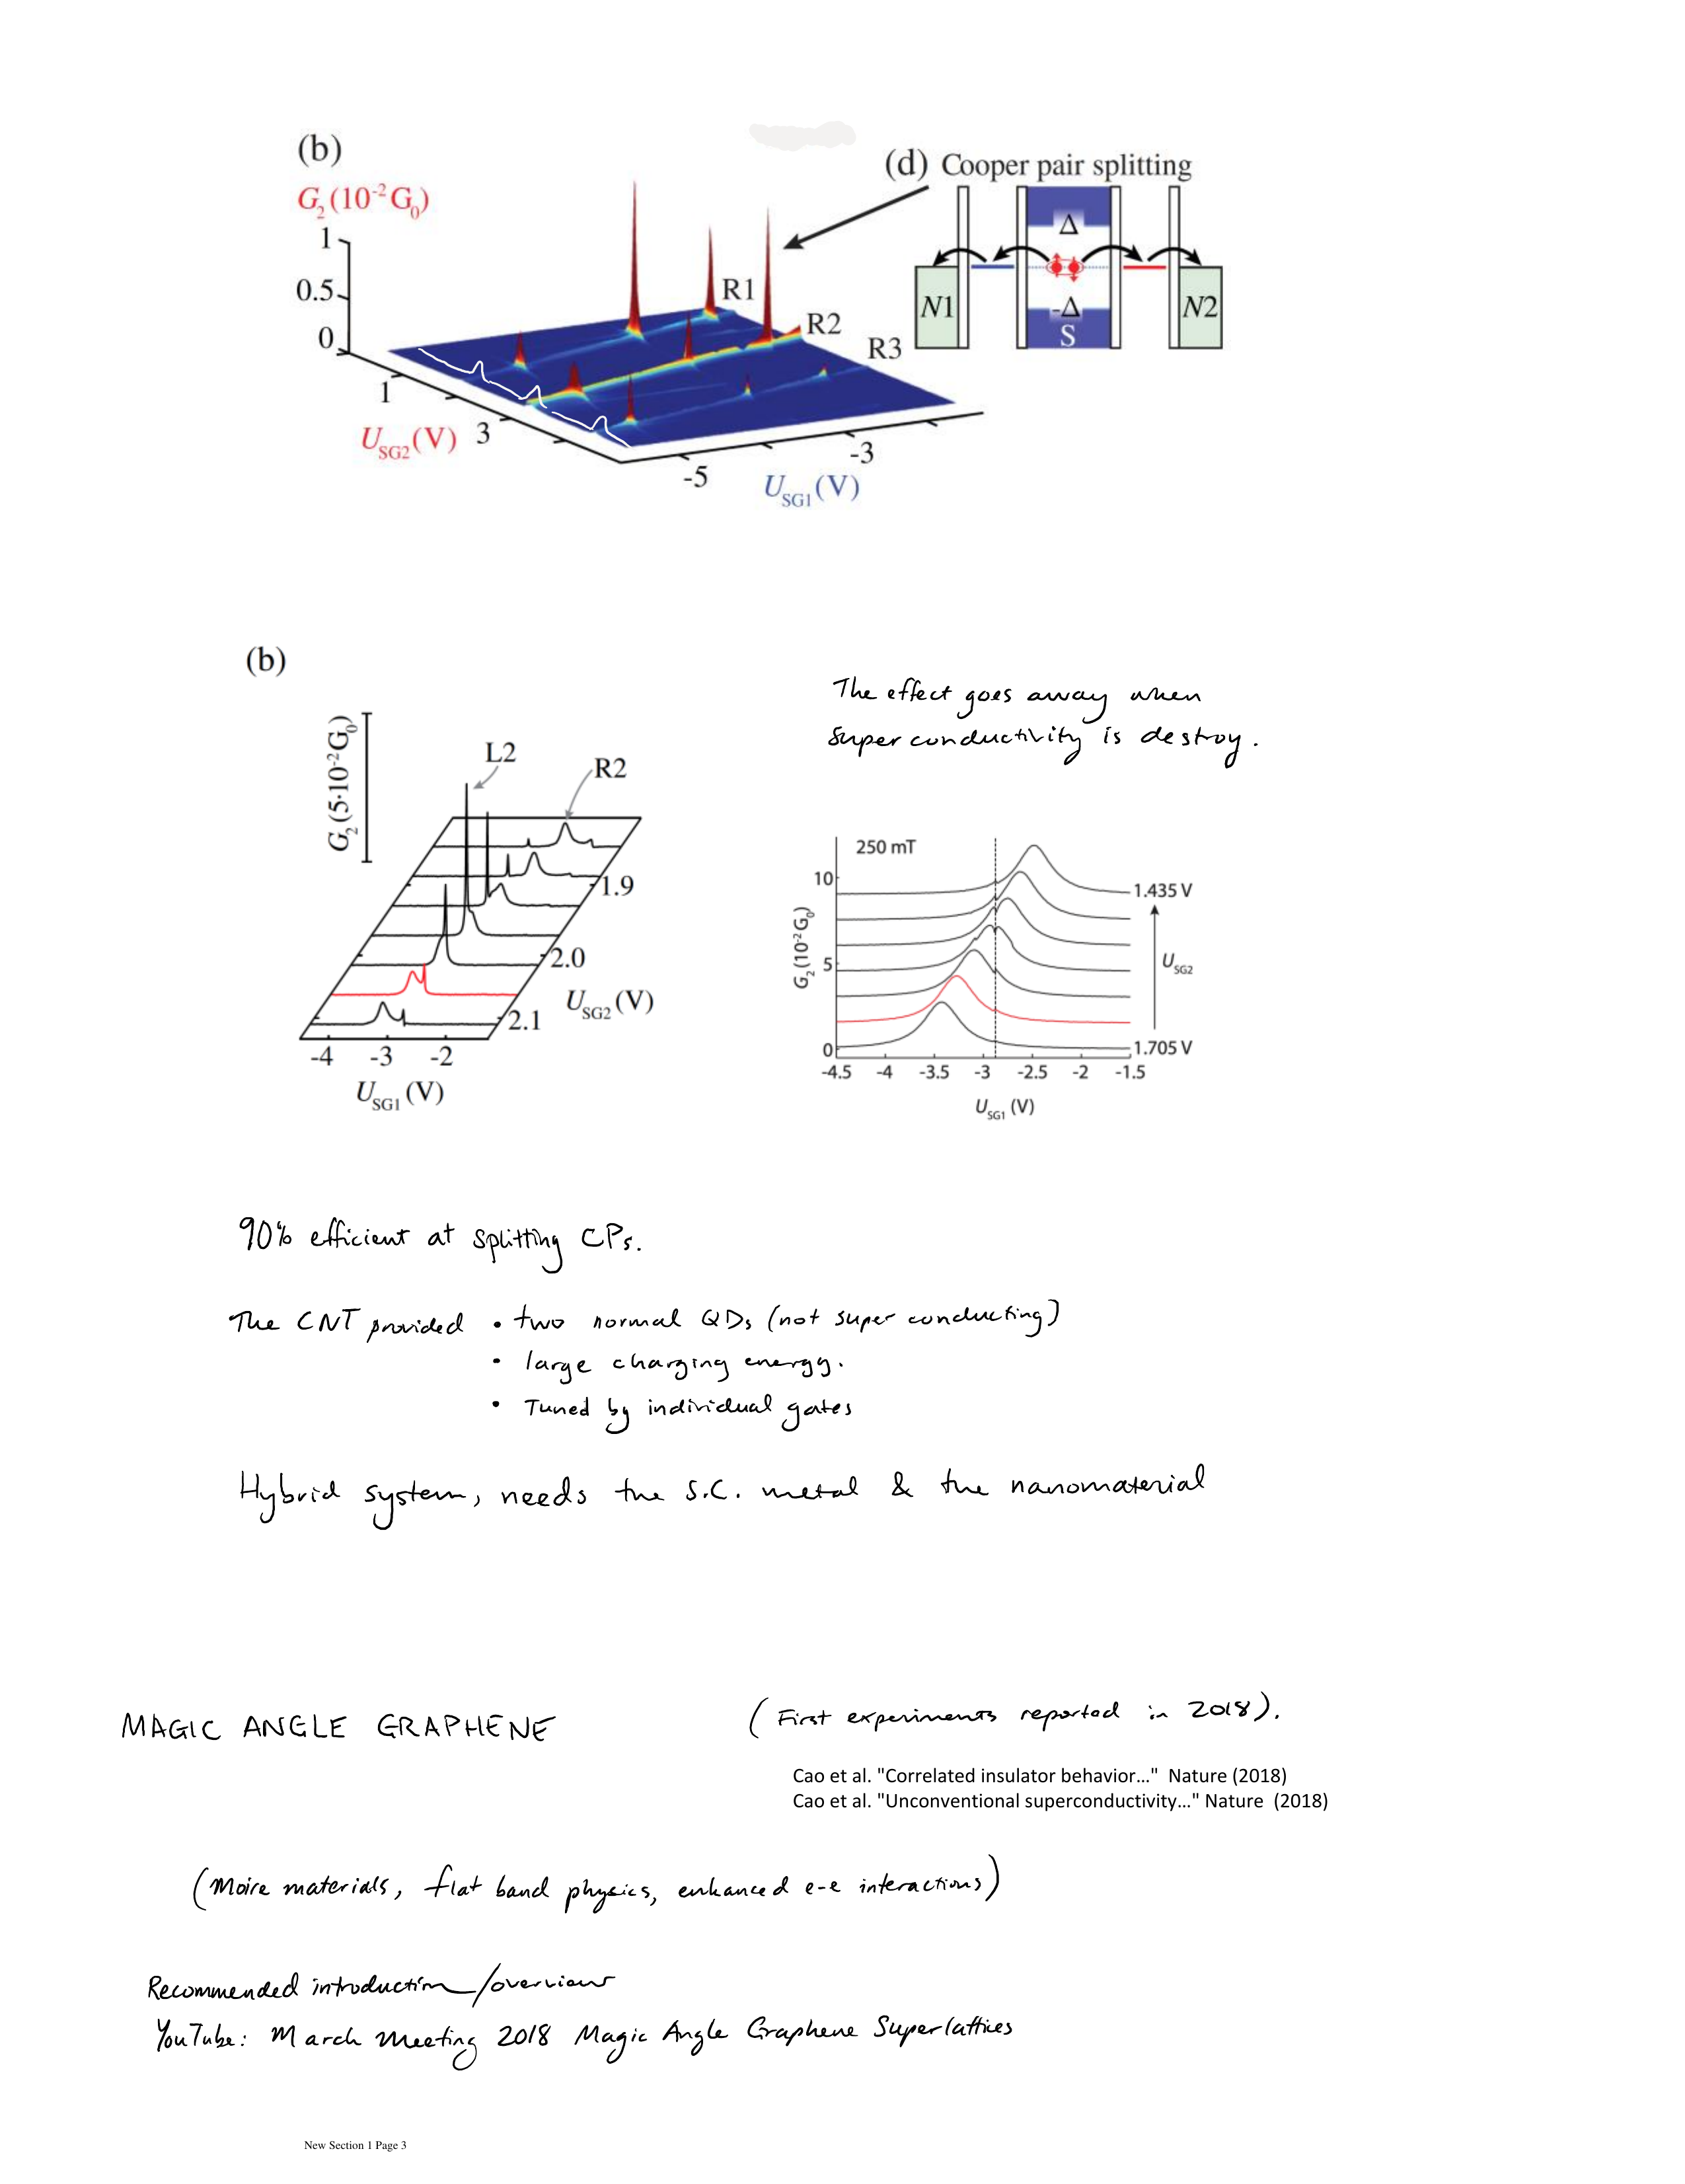 (b)
G2(10-2G0)
1
0.5
0
1
USG2(V) 3
-5
-3
USG1(V)
R1
R2
R3
(d) Cooper pair splitting
Δ
N1
-Δ
N2
S
(b)
G2(5·10-2G0)
L2
R2
1.9
2.0
USG2(V)
2.1
-4 -3 -2
USG1(V)
The effect goes away when
superconductivity is destroy.
250 mT
10
5
0
G2(10-2G0)
1.435 V
USG2
1.705 V
-4.5 -4 -3.5 -3 -2.5 -2 -1.5
USG1 (V)
90% efficient at splitting CPs.
The CNT provided • two normal QDs (not super conducting)
• large charging energy.
• Tuned by individual gates
Hybrid system, needs the S.C. metal & the nanomaterial
MAGIC ANGLE GRAPHENE (First experiments reported in 2018).
Cao et al. "Correlated insulator behavior…" Nature (2018)
Cao et al. "Unconventional superconductivity…" Nature (2018)
(Moire materials, flat band physics, enhanced e-e interactions)
Recommended introduction/overview
YouTube: March Meeting 2018 Magic Angle Graphene Superlattices
New Section 1 Page 3